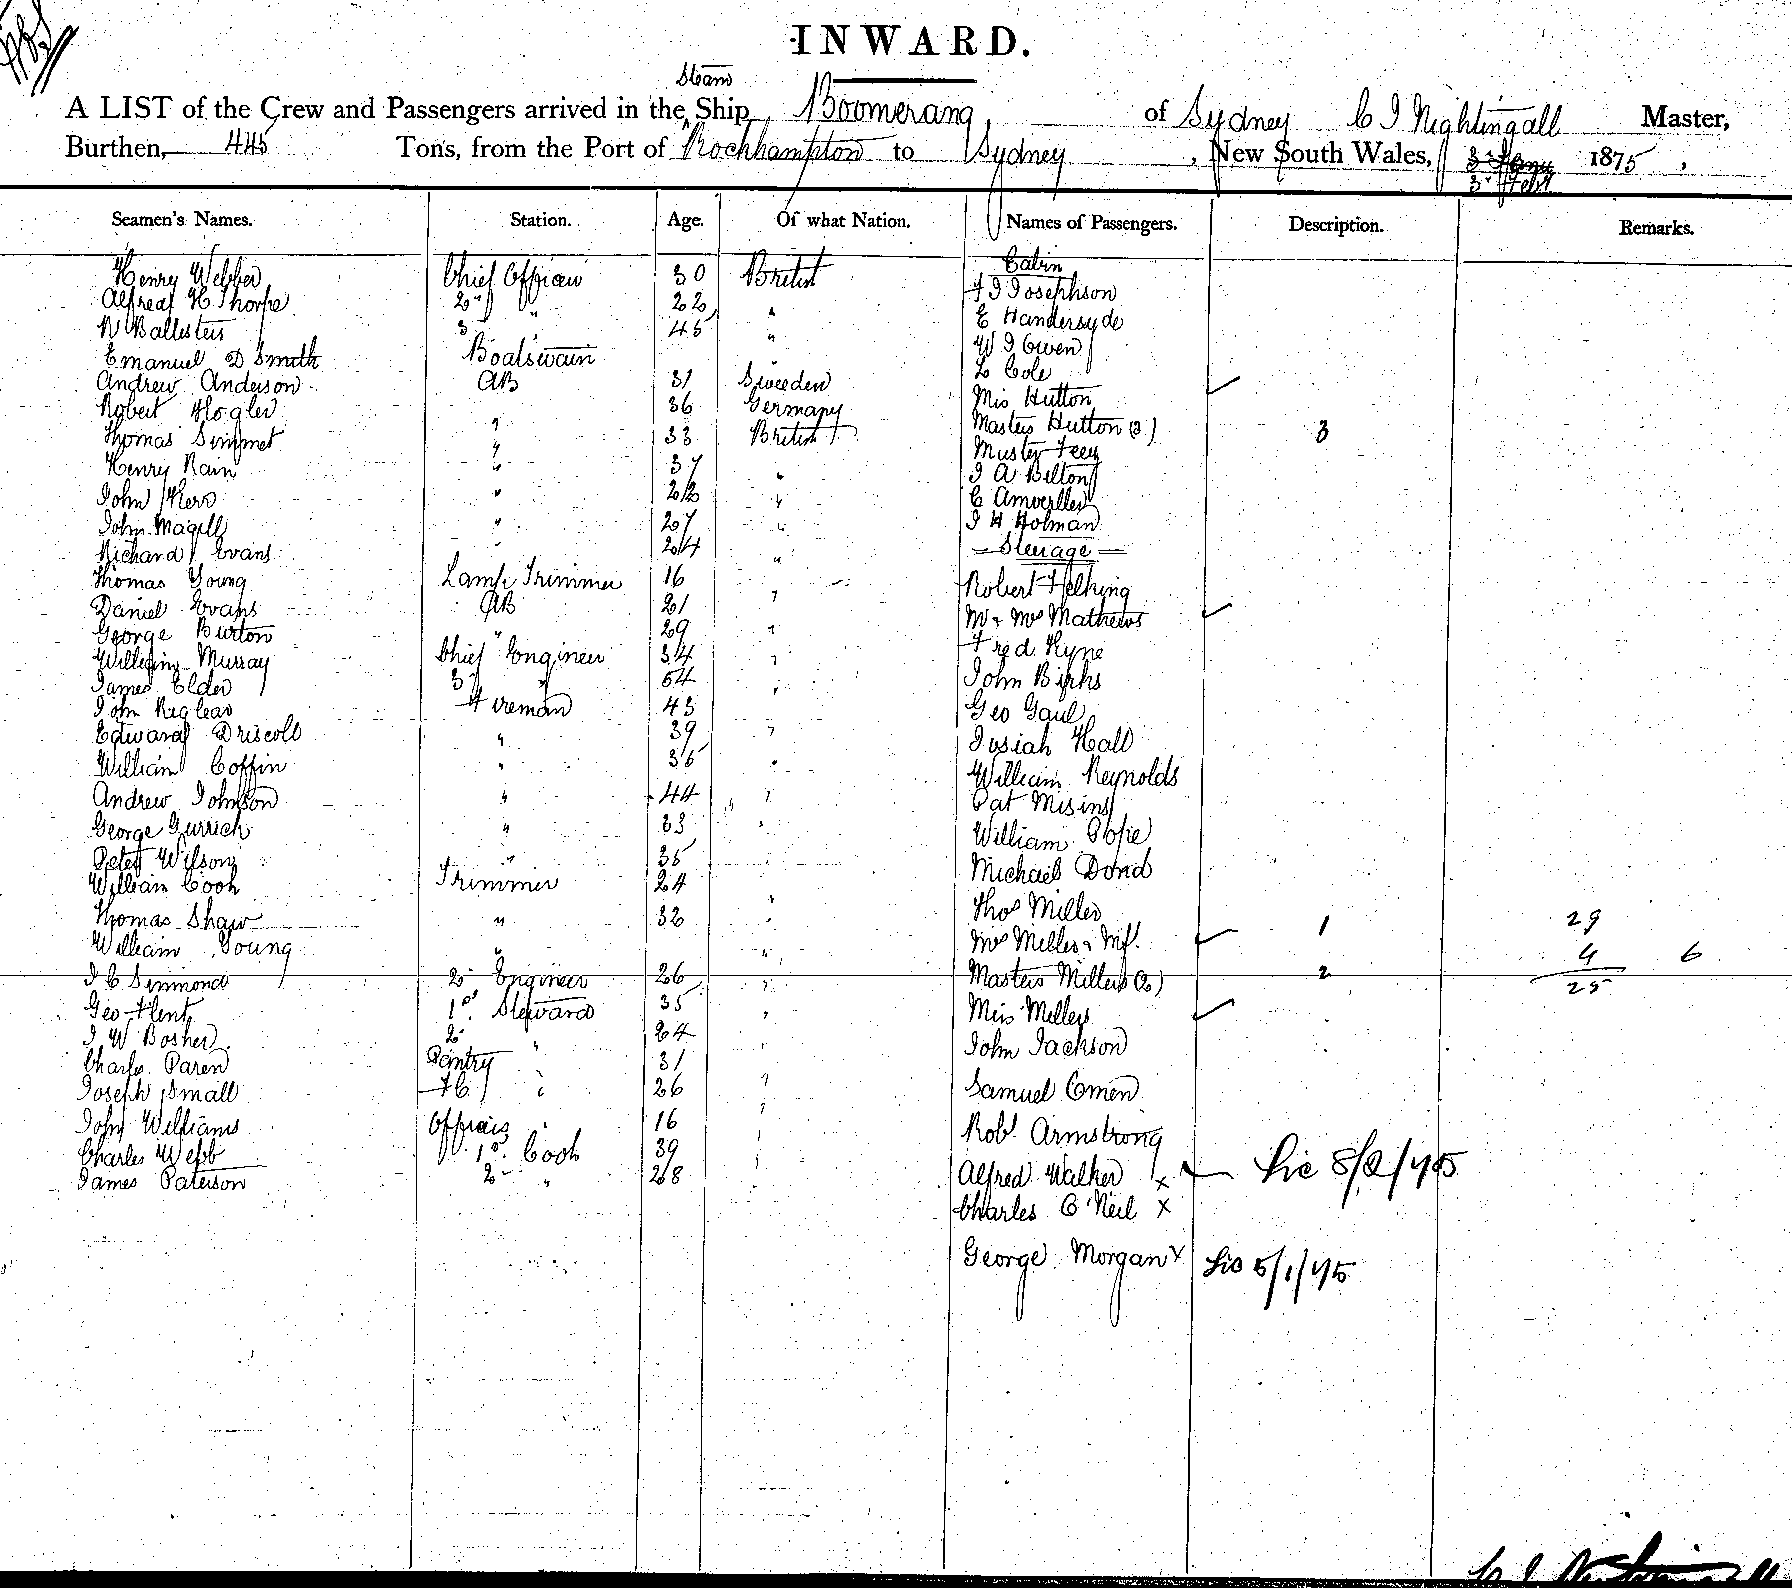 INWARD.
Steam
A LIST of the Crew and Passengers arrived in the Ship Boomerang, of Sydney C J Nightingall Master,
Burthen, 445 Tons, from the Port of Rockhampton to Sydney, New South Wales, 3 Jany 1875,
3 Feby
Seamen's Names. Station. Age. Of what Nation. Names of Passengers. Description. Remarks.
Cabin
Henry Webber Chief Officer 30 British
J J Josephson
Alfred H Thorpe 2nd " 22 "
E Handersyde
R Ballesters 3 " 45 "
W J Owen
Emanuel D Smith Boatswain
L Cole
Andrew Anderson AB 31 Sweeden
Mis Hutton
Robert Hogler " 36 Germany
Masters Hutton (3) 3
Thomas Simmet " 33 British
Master
Henry Rain " 37 "
J A Bilton
John Kerr " 22 "
C
John Magill " 27 "
J H Holman
Richard Evans " 24 "
Steerage
Thomas Young Lamp Trimmer 16
Robert
Daniel Evans AB 21 "
Mr & Mrs Mathews
George Burton " 29 "
Fred Kyne
William Murray Chief Engineer 34 "
James Elder 3 " 54 "
John Birks
John Fireman 43
Geo Gaul
Edward Driscoll " 39 "
Josiah Hall
William Coffin " 36 "
William Reynolds
Andrew Johnson " 44 "
Pat
George " 33 "
William Pope
Peter Wilson " 35
Michael
William Cook Trimmer 24
Thos Miller
Thomas Shaw " 32 " 29
Mrs Miller & Inf. 1
William Young " " 4 6
J C Simmond 2nd Engineer 26 " Masters Millers (2) 2
25
Geo Flent 1st Steward 35 " Miss Millers
J W Bosher 2 " 24 "
John Jackson
Charles Paren Pantry 31
Joseph Small FC " 26 " Samuel Omen
John Williams Officers " 16 "
Robt Armstrong
Charles Webb 1st Cook 39
James Paterson 2 " 28 Alfred Walker x Lic 8/2/75
Charles O'Neil x
George Morgan x Lic 5/1/75